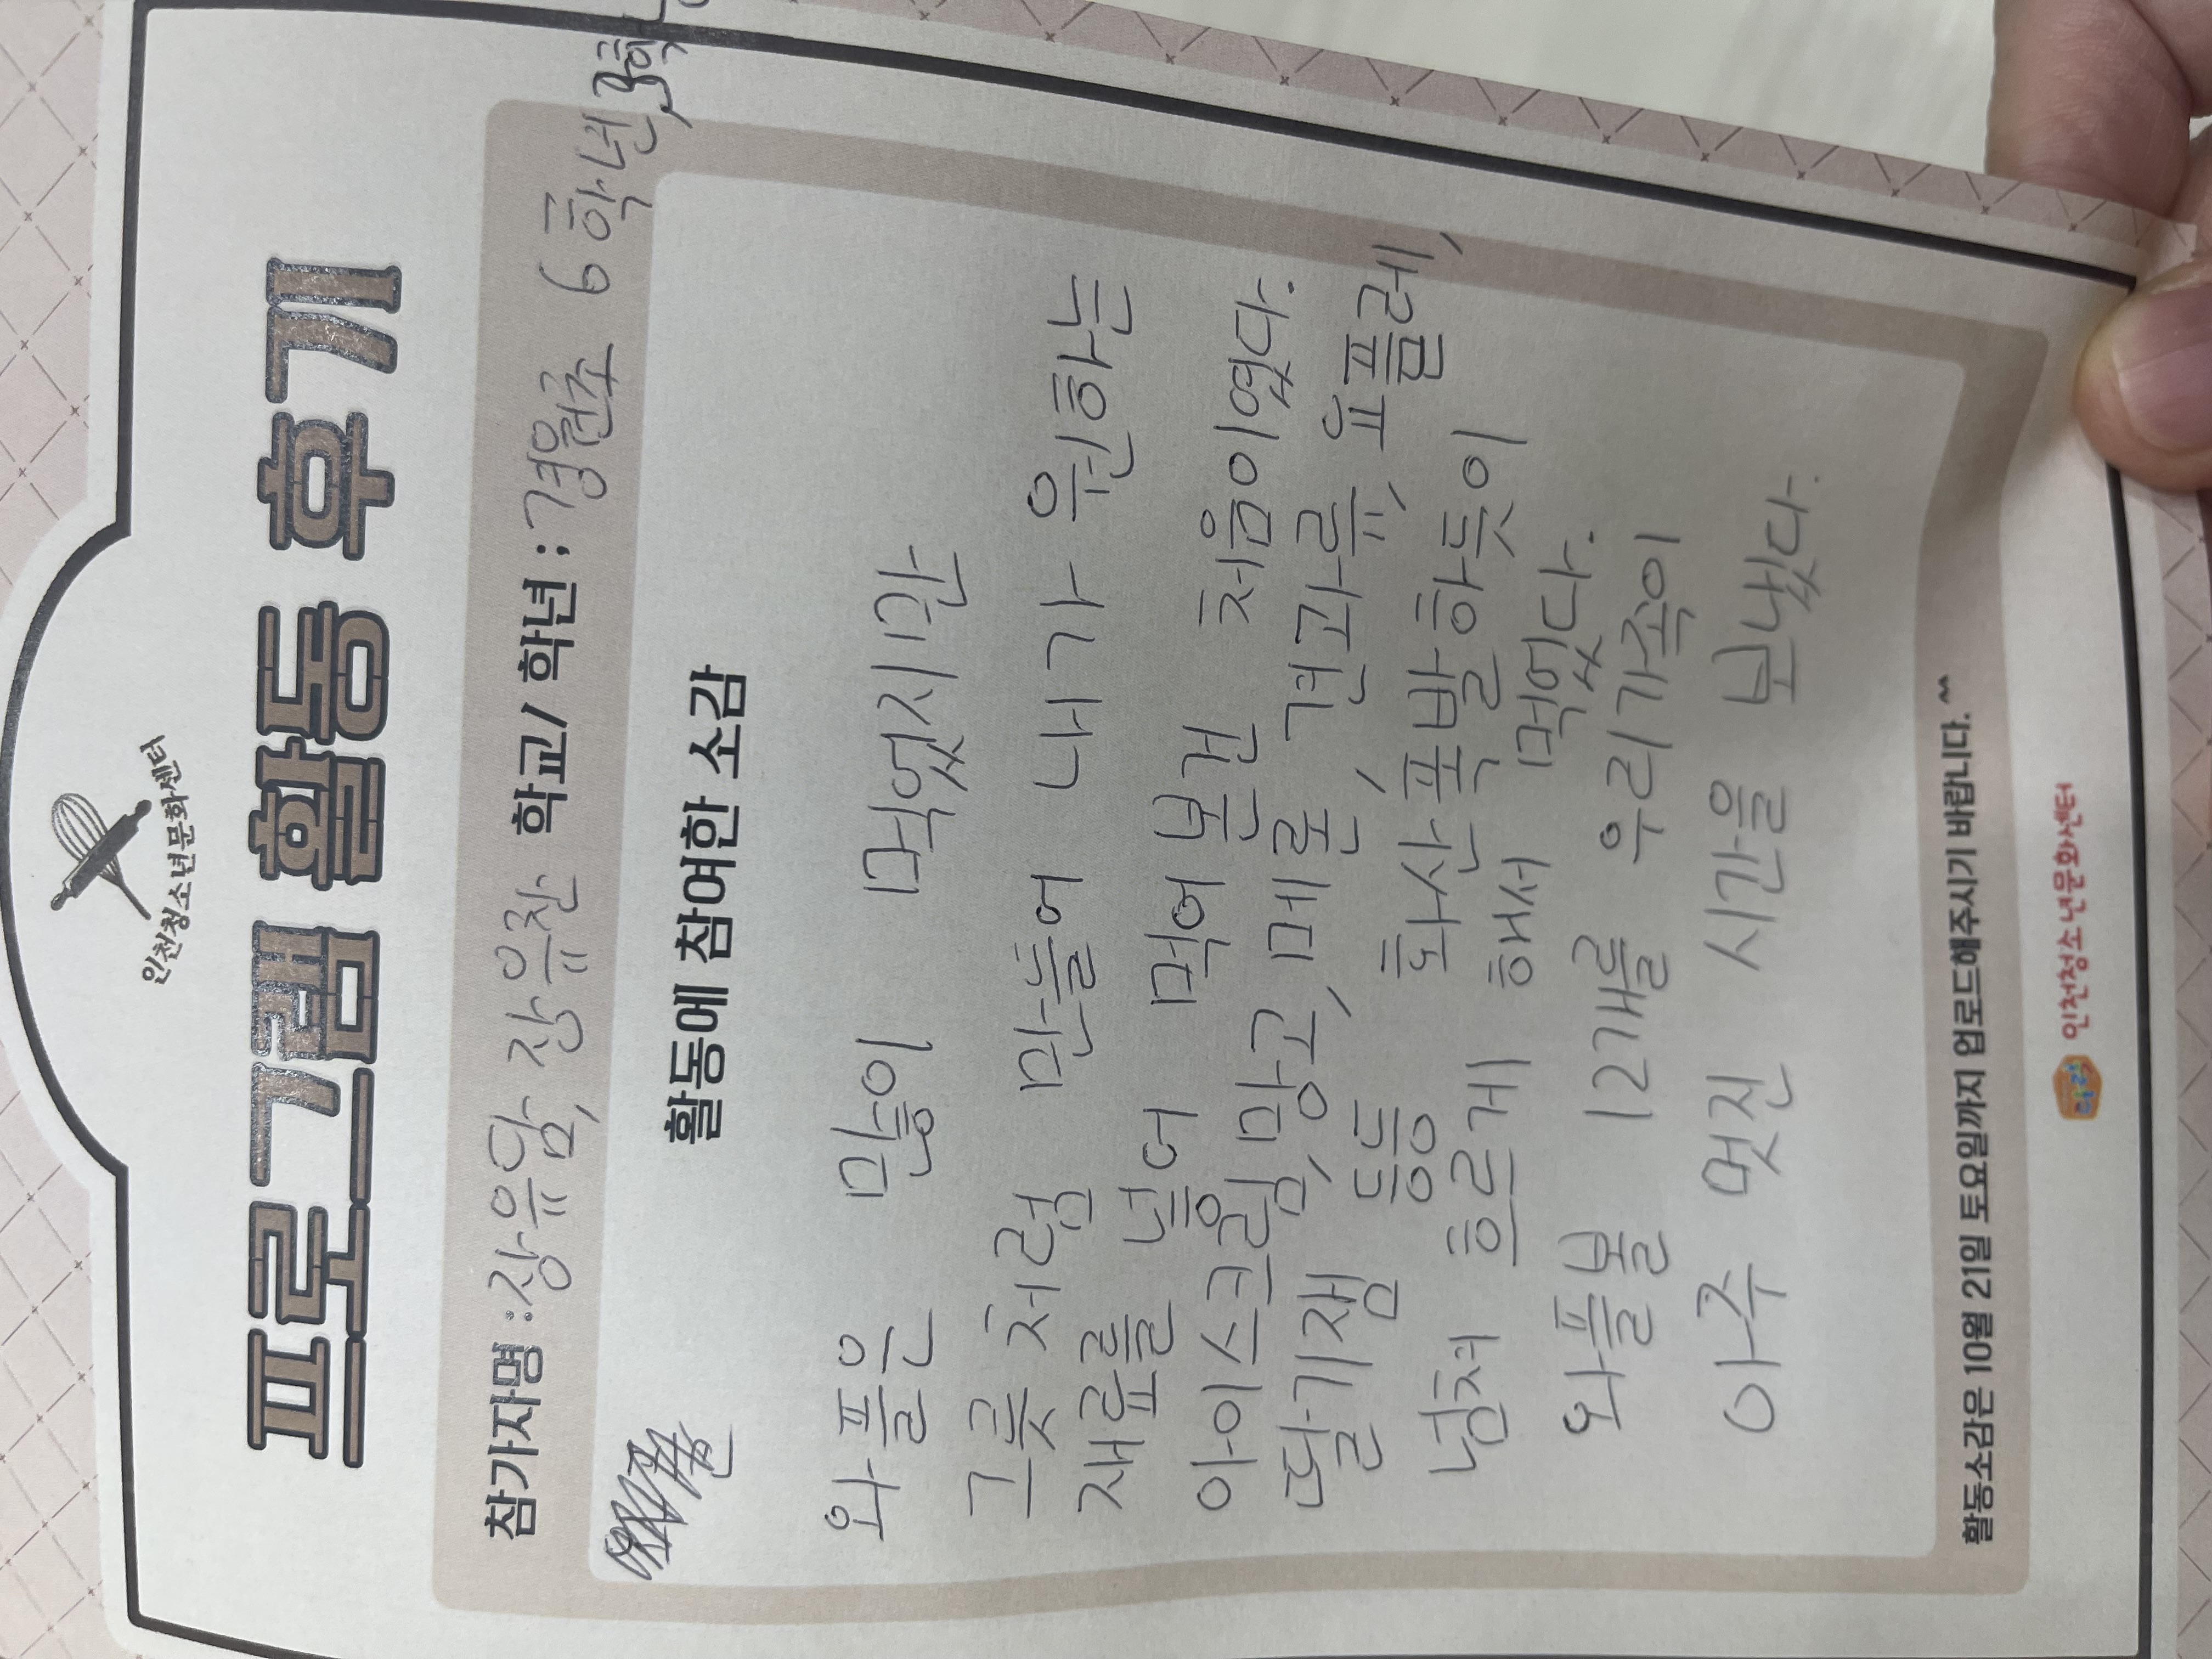 인천청소년문화센터
프로그램 활동 후기
참가자명 : 장유담, 장유찬 학교/ 학년 : 경원초 6학년, 3학
활동에 참여한 소감
와플은 많이 먹었지만
그릇처럼 만들어 내가 원하는
재료를 넣어 먹어본건 처음이였다.
아이스크림, 망고, 메론, 견과류, 요플레,
딸기잼 등등 화산폭발하듯이
넘쳐 흐르게 해서 먹었다.
와플볼 12개를 우리가족이
아주 멋진 시간을 보냈다.
활동소감은 10월 21일 토요일까지 업로드해주시기 바랍니다.^^
인천청소년문화센터